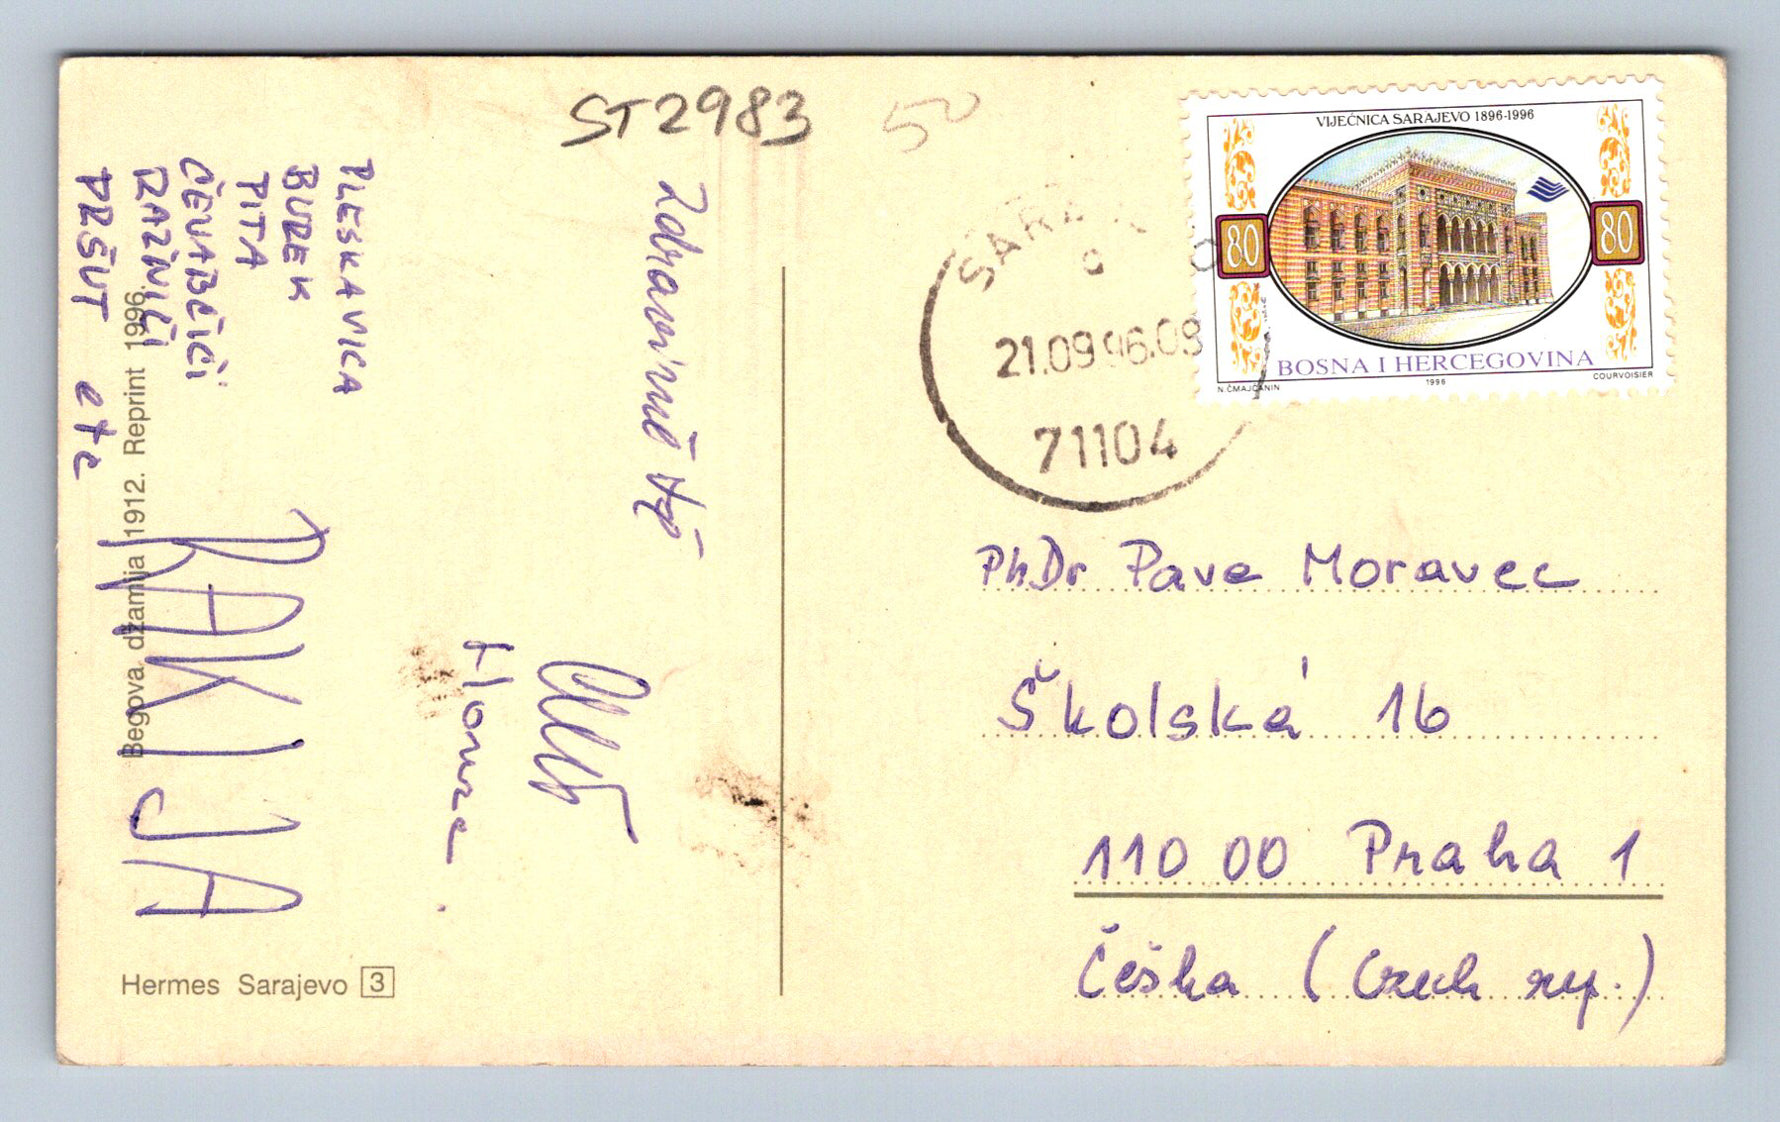 ST2983 50
PLESKAVICA
BUREK
PITA
ČEVABČIČI
RAŽNIČI
PRŠUT etc
RAKIJA
Zdravíme
Honza
Begova džamija 1912. Reprint 1996.
Hermes Sarajevo 3
VIJEĆNICA SARAJEVO 1896-1996
80 80
BOSNA I HERCEGOVINA
N. ČMAJČANIN 1996 COURVOISIER
21.09.96.09
71104
PhDr Pave Moravec
Školská 16
110 00 Praha 1
Češka (Czech rep.)